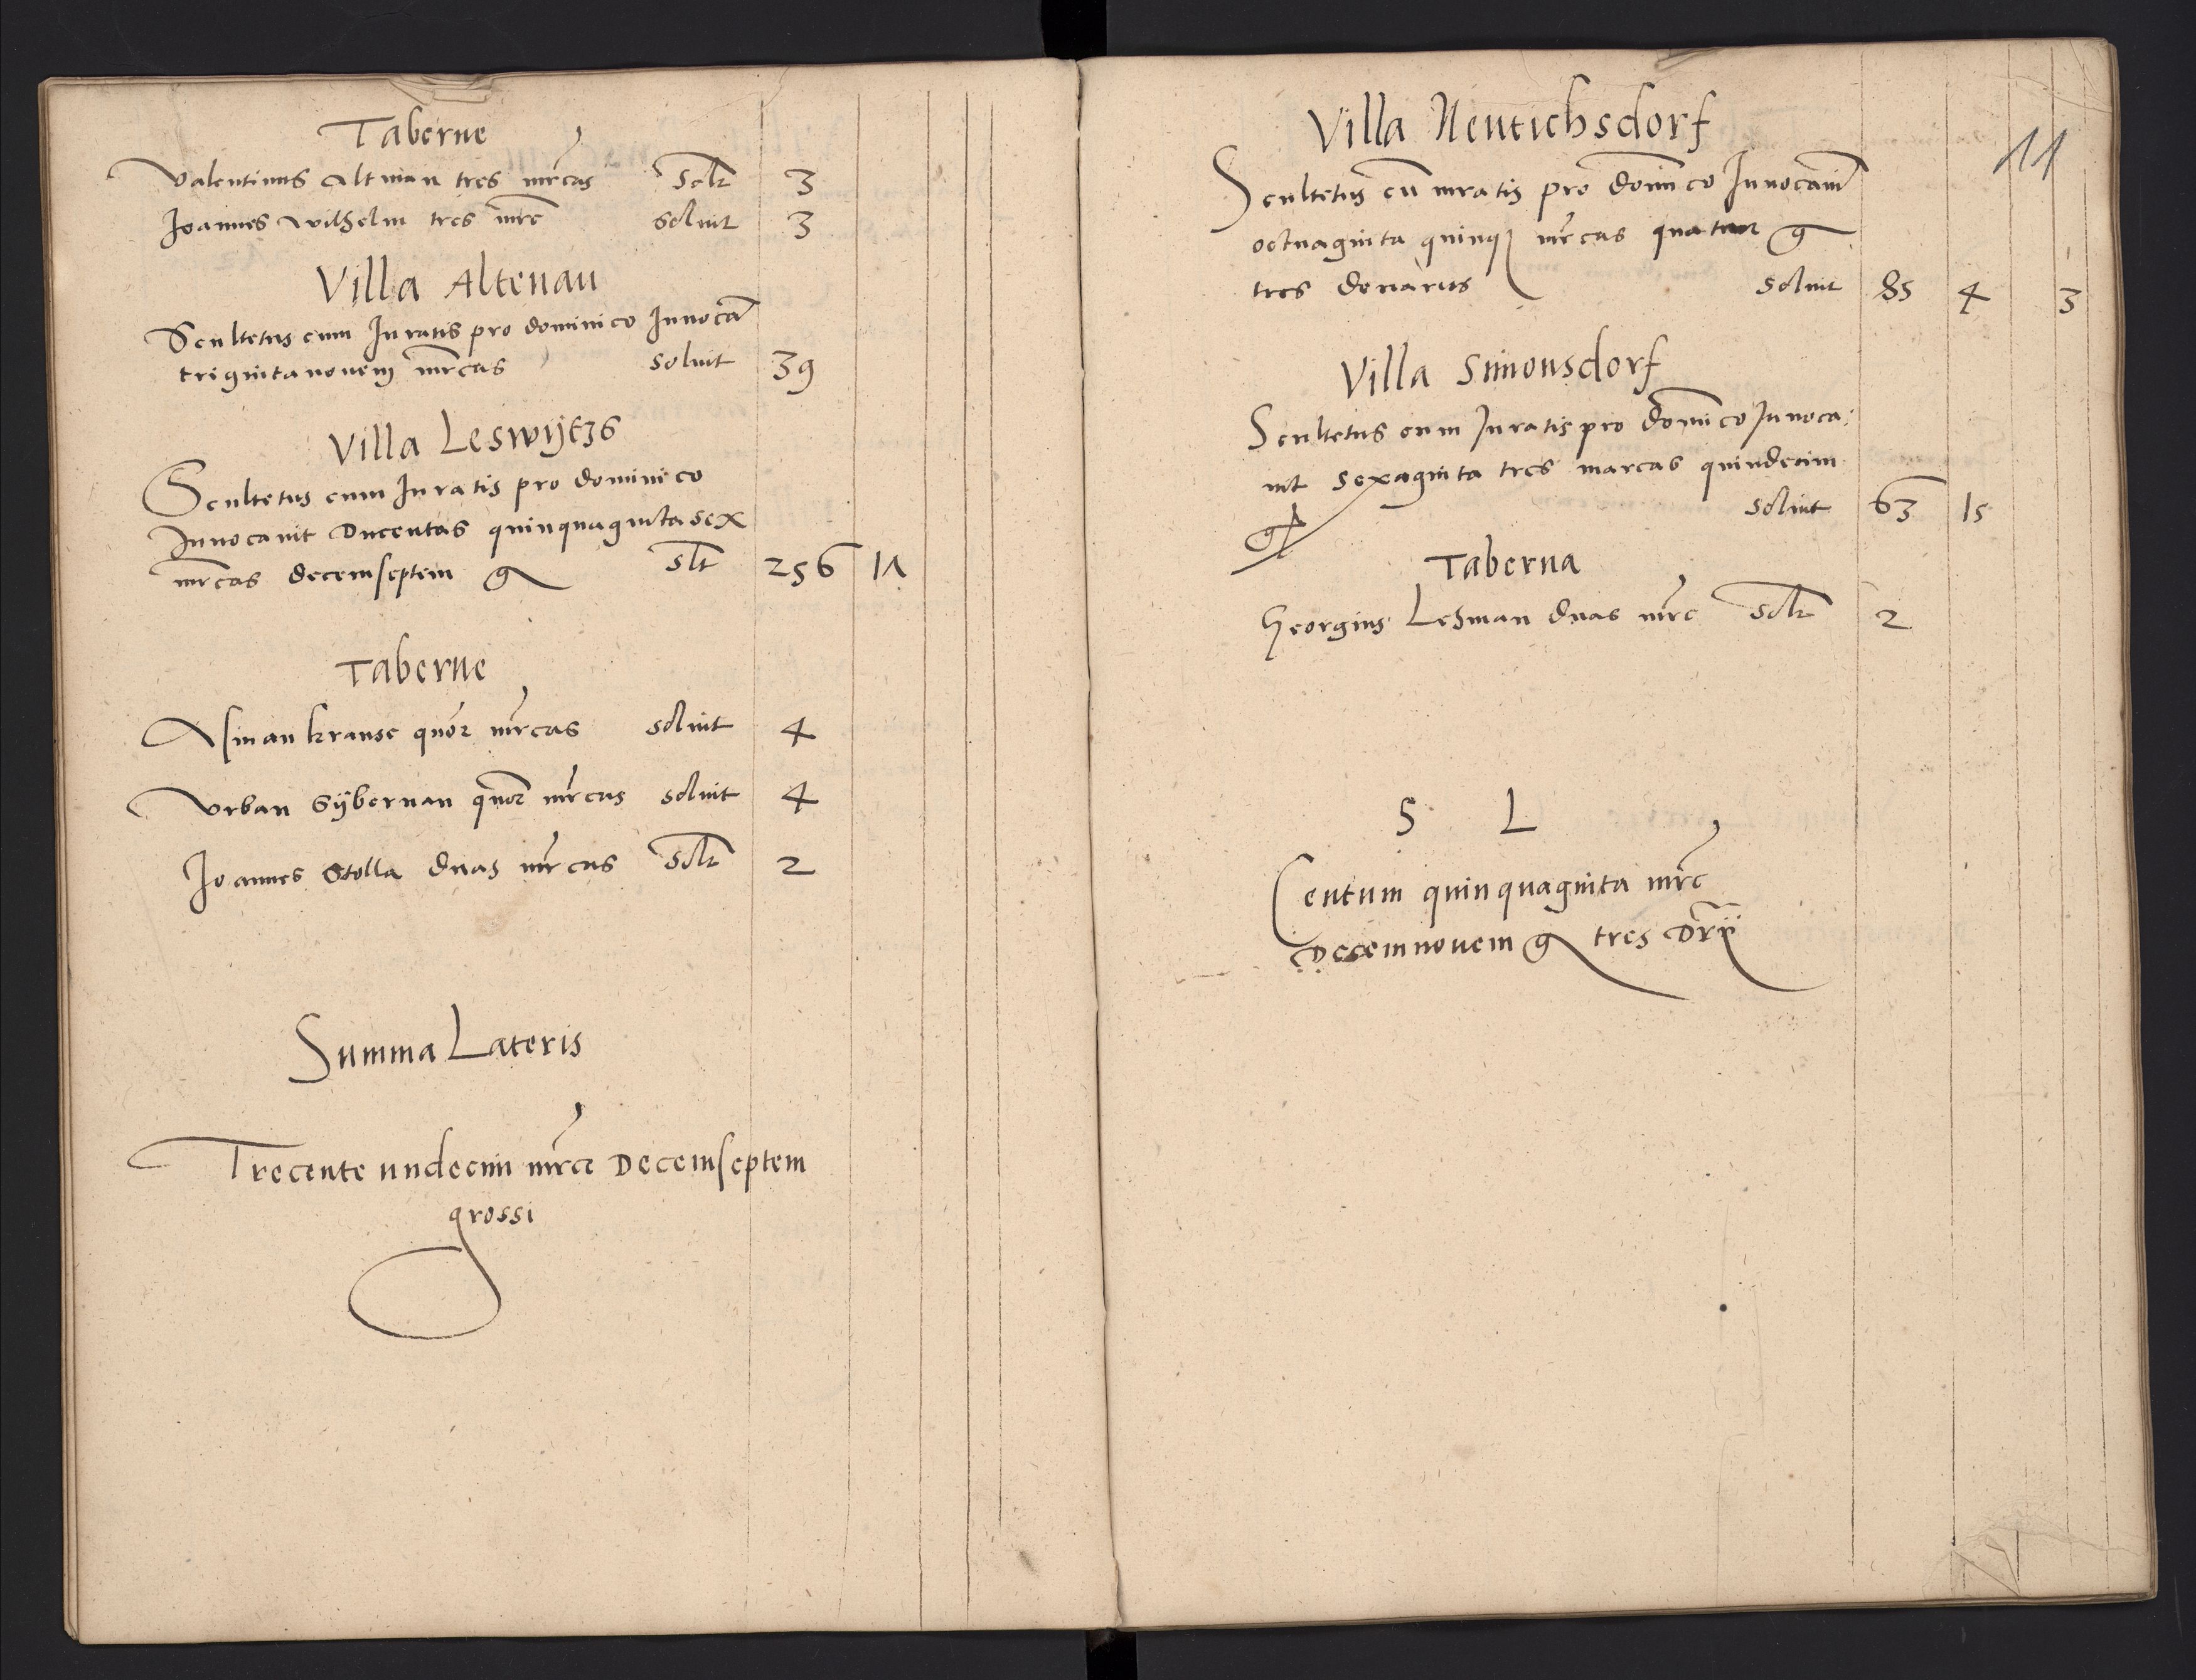 Taberne
Valentinus Altman tres mrcas Solt 3
Joannes Wilhelm tres mrc soluit 3
Villa Altenau
Scultetus cum Iuratis pro dominico Inuocat
triginta novem mrcas soluit 39
Villa Leswijtzs
Scultetus cum Iuratis pro dominico
Inuocauit Ducentas quinquaginta sex
mrcas decemseptem g slt 256 17
Taberne
Asman krause quor mrcas soluit 4
Urban Sÿberman quor mrcas soluit 4
Joannes Stolla duas mrcas Solt 2
Summa Lateris
Trecente undecim mrce Decemseptem
grossi
11
Villa Neutichsdorf
Scultetus cu iuratis pro domico Inuocauit
octuaginta quinq mrcas quatuor g
tres denarios soluit 85 4 3
Villa Simonsdorf
Scultetus cum Iuratis pro domico Inuoca:
uit sexaginta tres marcas quindecim
g soluit 63 15
Taberna
Georgius Lehman duas mrc Solt 2
S L
Centum quinquaginta mrc
Decemnovem g tres Drii